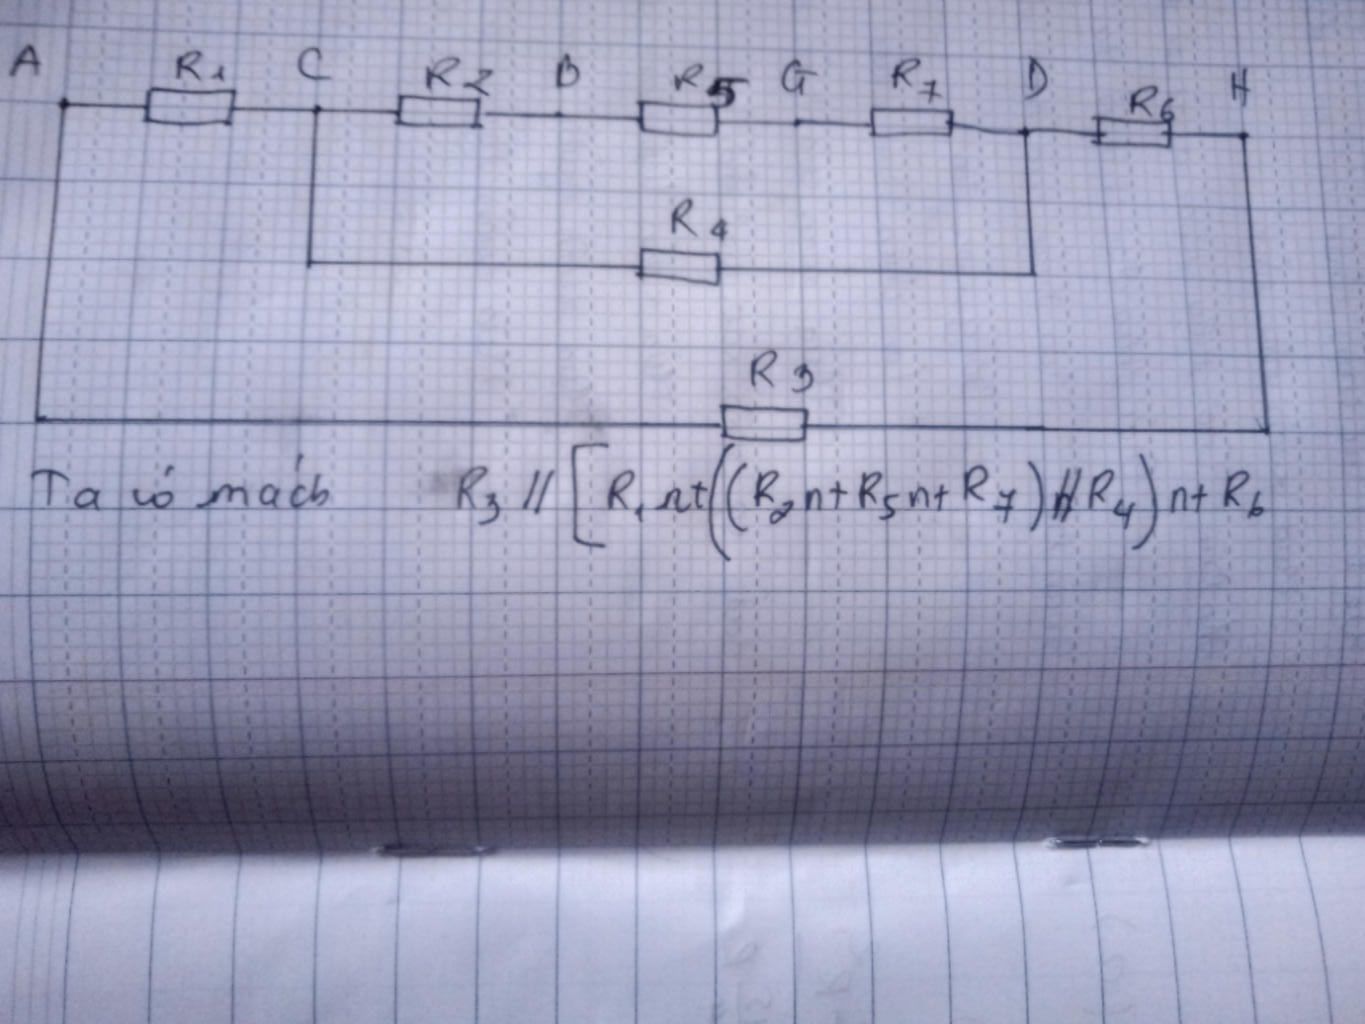 A R1 C R2 B R5 G R7 D R6 H
R4
R3
Ta có mách R3 // [R1 nt((R2nt R5nt R7) // R4) nt R6